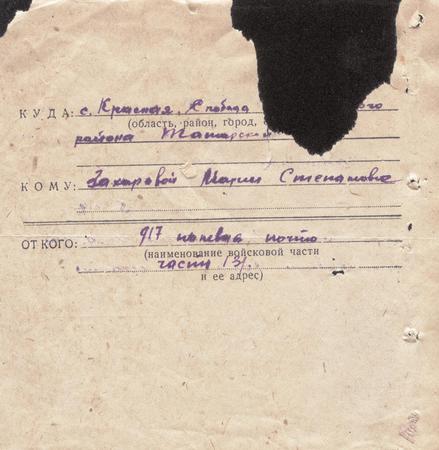 КУДА: с. Красная Слобода ого
(область, район, город,
района Татарской
КОМУ: Захаровой Марии Степановне
ОТ КОГО: 917 полевая почта
(наименование войсковой части
части 131.
и ее адрес)